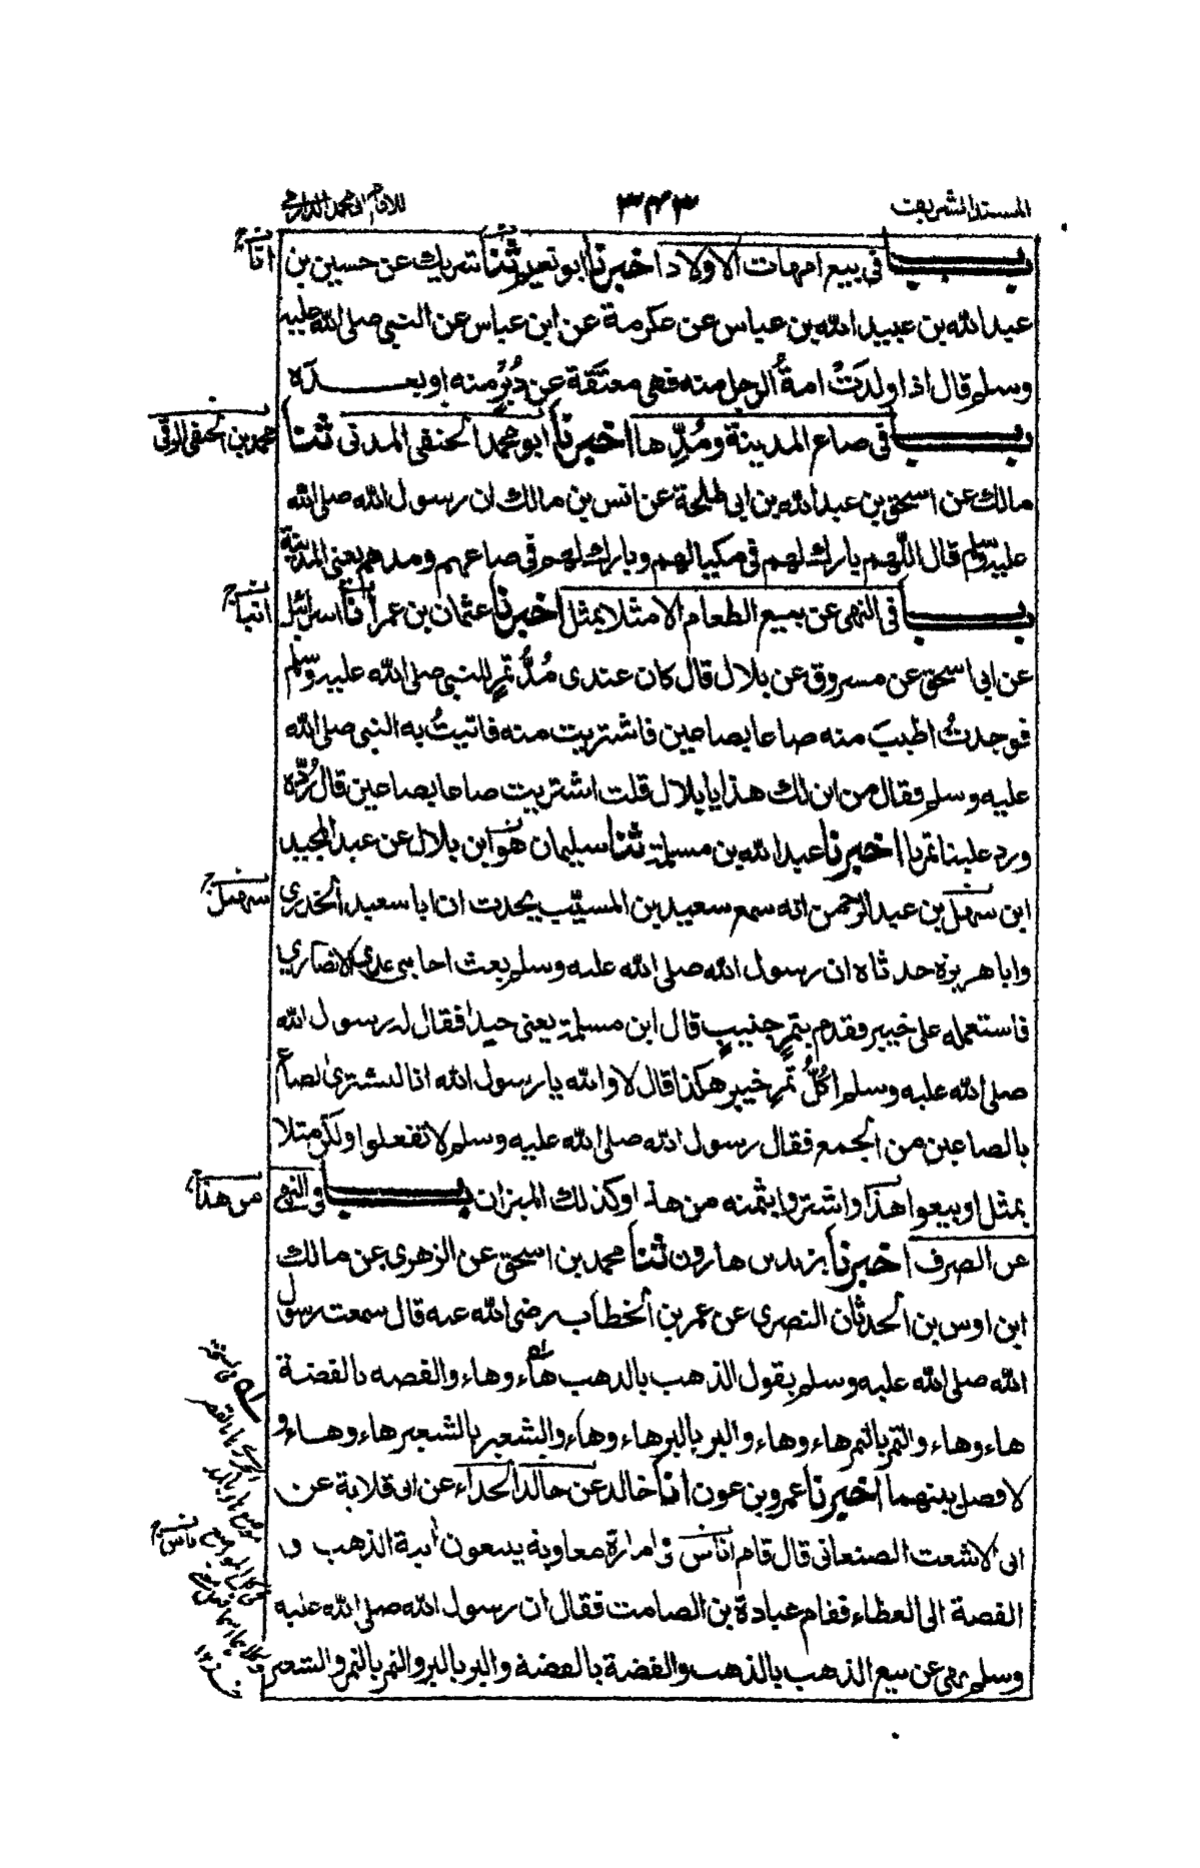 المسند الشريف
٣٤٣
للامام ابى محمد الدارمي
باب فى بيع امهات الاولاد اخبرنا ابو نعيم ثنا شريك عن حسين بن
عبد الله بن عبيد الله بن عباس عن عكرمة عن ابن عباس عن النبي صلى الله عليه
وسلم قال اذا ولدَتْ امةُ الرجل منه فهى معتَقة عن دُبُرٍ منه او بعده
باب فى صاع المدينة ومُدِّها اخبرنا ابو محمد الحنفى المدنى ثنا
مالك عن اسحق بن عبد الله بن ابى طلحة عن انس بن مالك ان رسول الله صلى الله
عليه وسلم قال اللّهم بارك لهم فى مكيالهم وبارك لهم فى صاعهم ومدهم يعنى المدينة
باب فى النهى عن بيع الطعام الا مثلا بمثل اخبرنا عثمان بن عمر انا اسرائيل
عن ابى اسحق عن مسروق عن بلال قال كان عندى مُدُّ تمرٍ للنبى صلى الله عليه وسلم
فوجدتُ اطيبَ منه صاعا بصاعين فاشتريت منه فاتيتُ به النبى صلى الله
عليه وسلم فقال من اين لك هذا يا بلال قلت اشتريت صاعا بصاعين قال رُدَّه
ورد علينا تمرنا اخبرنا عبد الله بن مسلمة ثنا سليمان هو ابن بلال عن عبد المجيد
ابن سهيل بن عبد الرحمن انه سمع سعيد بن المسيّب يحدث ان ابا سعيد الخدري
وابا هريرة حدثاه ان رسول الله صلى الله عليه وسلم بعث اخا بنى عدي الانصاري
فاستعمله على خيبر فقدم بتمرٍ جنيبٍ قال ابن مسلمة يعنى جيدا فقال له رسول الله
صلى الله عليه وسلم اكُلُّ تمرِ خيبر هكذا قال لا والله يا رسول الله انا لنشترى الصاع
بالصاعين من الجمع فقال رسول الله صلى الله عليه وسلم لا تفعلوا ولكن مثلا
بمثل او بيعوا هذا واشتروا بثمنه من هذا وكذلك الميزان باب فى النهى
عن الصرف اخبرنا يزيد بن هارون ثنا محمد بن اسحق عن الزهرى عن مالك
ابن اوس بن الحدثان النصرى عن عمر بن الخطاب رضى الله عنه قال سمعت رسول
الله صلى الله عليه وسلم يقول الذهب بالذهب هاء وهاء والفضة بالفضة
هاء وهاء والتمر بالتمر هاء وهاء والبر بالبر هاء وهاء والشعير بالشعير هاء وهاء و
لا فضل بينهما اخبرنا عمرو بن عون انا خالد عن خالد الحذاء عن ابى قلابة عن
ابى الاشعث الصنعانى قال قام اناس فى امارة معاوية يبيعون آنية الذهب و
الفضة الى العطاء فقام عبادة بن الصامت فقال ان رسول الله صلى الله عليه
وسلم نهى عن بيع الذهب بالذهب والفضة بالفضة والبر بالبر والتمر بالتمر والشعير
محمد بن الحنفى الرقى
سهيل
من هذا